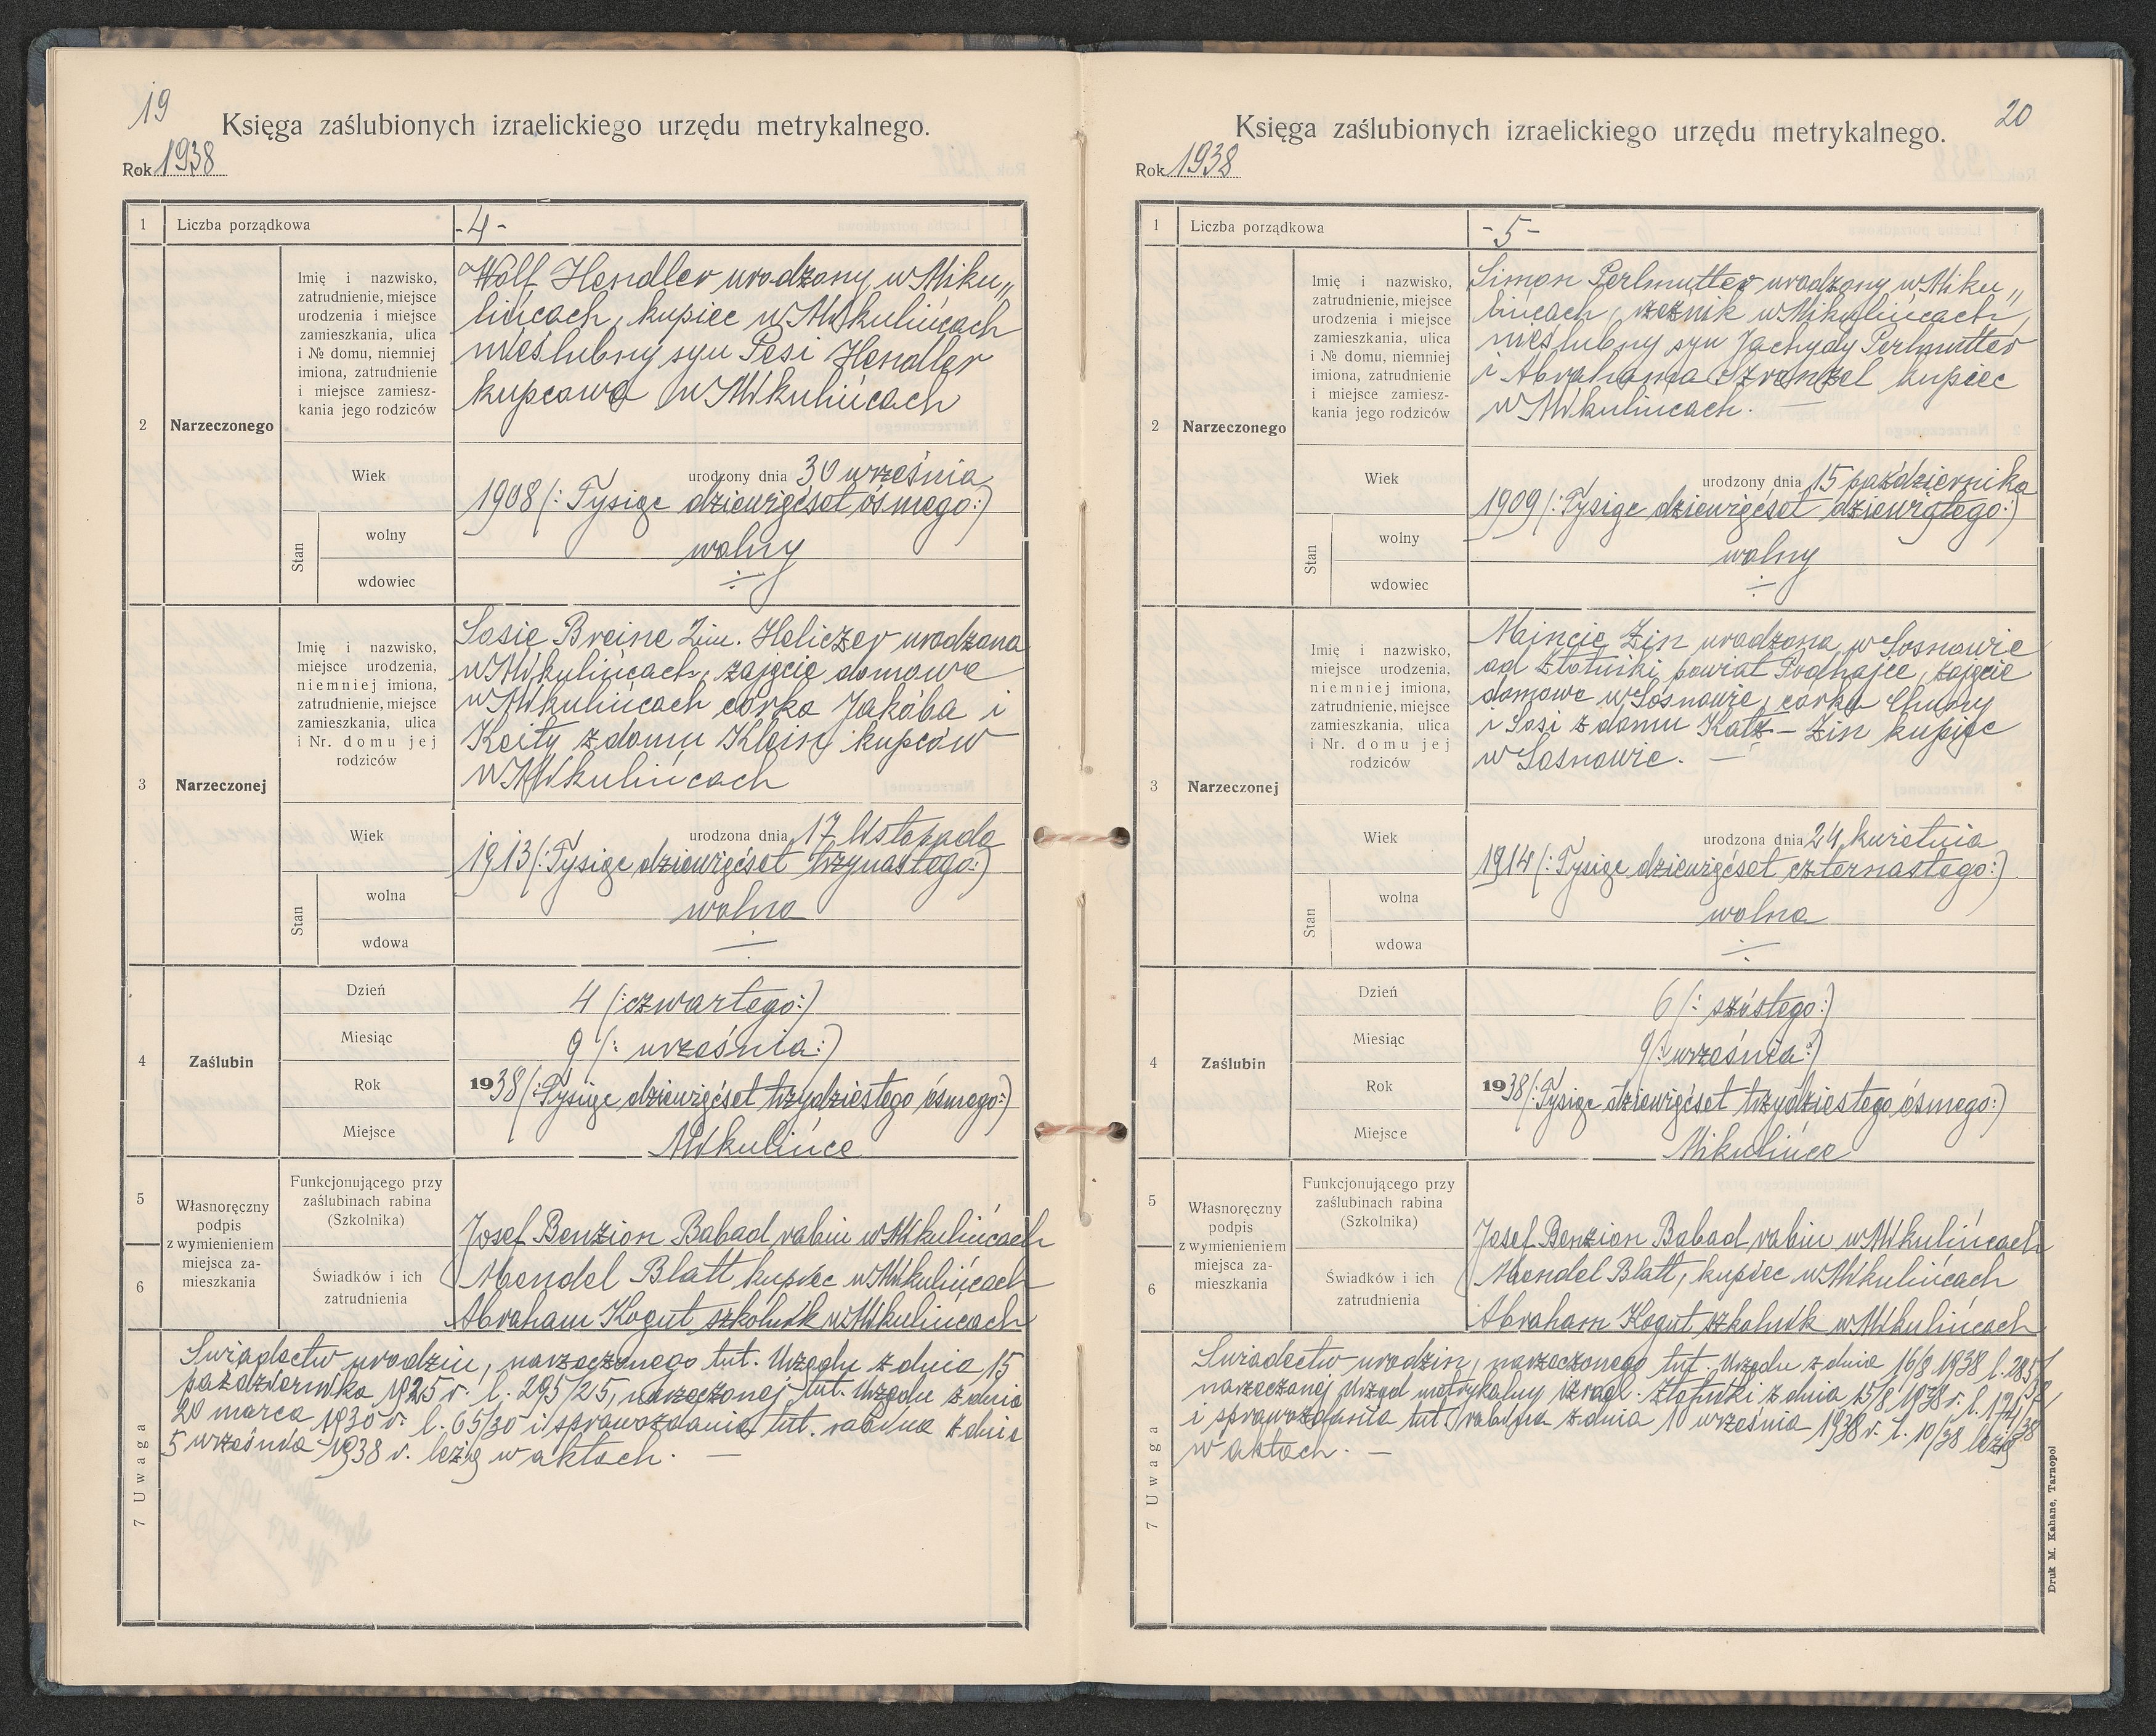 19
Księga zaślubionych izraelickiego urzędu metrykalnego.
Rok 1938
1 Liczba porządkowa -4-
2 Narzeczonego
Imię i nazwisko,
zatrudnienie, miejsce
urodzenia i miejsce
zamieszkania, ulica
i № domu, niemniej
imiona, zatrudnienie
i miejsce zamiesz-
kania jego rodziców
Wolf Hendler urodzony w Miku„
lińcach, kupiec w Mikulińcach
nieślubny syn Pesi Hendler
kupcowa w Mikulińcach
Wiek urodzony dnia 30 września
1908 (: Tysiąc dziewięćset ósmego:)
Stan
wolny wolny
wdowiec ÷
3 Narzeczonej
Imię i nazwisko,
miejsce urodzenia,
niemniej imiona,
zatrudnienie, miejsce
zamieszkania, ulica
i Nr. domu jej
rodziców
Sosie Breine 2im. Heliczer urodzona
w Mikulińcach, zajęcie domowe
w Mikulińcach córka Jakóba i
Keity z domu Klein kupców
w Mikulińcach
Wiek urodzona dnia 17 listopada
1913 (: Tysiąc dziewięćset trzynastego:)
Stan
wolna wolna
wdowa ÷
4 Zaślubin
Dzień 4 (: czwartego:)
Miesiąc 9 (: września:)
Rok 1938 (: Tysiąc dziewięćset trzydziestego ósmego:)
Miejsce Mikulińce
5
6
Własnoręczny
podpis
z wymienieniem
miejsca za-
mieszkania
Funkcjonującego przy
zaślubinach rabina
(Szkolnika)
Josef Benzion Babad rabin w Mikulińcach
Świadków i ich
zatrudnienia
Mendel Blatt kupiec w Mikulińcach
Abraham Kogut szkolnik w Mikulińcach
7 Uwaga
Świadectw urodzin, narzeczonego tut. Urzędu z dnia 15
października 1925 r. l. 295/25, narzeczonej tut. Urzędu z dnia
20 marca 1930 r. l. 65/30 i sprawozdania tut. rabina z dnia
5 września 1938 r. leżą w aktach. —
20
Księga zaślubionych izraelickiego urzędu metrykalnego.
Rok 1938
1 Liczba porządkowa -5-
2 Narzeczonego
Imię i nazwisko,
zatrudnienie, miejsce
urodzenia i miejsce
zamieszkania, ulica
i № domu, niemniej
imiona, zatrudnienie
i miejsce zamiesz-
kania jego rodziców
Simon Perlmutter urodzony w Miku„
lińcach, rzeźnik w Mikulińcach,
nieślubny syn Jachydy Perlmutter
i Abrahama kupiec
w Mikulińcach. —
Wiek urodzony dnia 15 października
1909 (: Tysiąc dziewięćset dziewiątego:)
Stan
wolny wolny
wdowiec ÷
3 Narzeczonej
Imię i nazwisko,
miejsce urodzenia,
niemniej imiona,
zatrudnienie, miejsce
zamieszkania, ulica
i Nr. domu jej
rodziców
Mincie Zin urodzona w Sosnowie
ad Złotniki powiat Podhajce, zajęcie
domowe w Sosnowie, córka Chuny
i Sosi z domu Katz – Zin kupiec
w Sosnowie. —
Wiek urodzona dnia 24 kwietnia
1914 (: Tysiąc dziewięćset czternastego:)
Stan
wolna wolna
wdowa ÷
4 Zaślubin
Dzień 6 (: szóstego:)
Miesiąc 9 (: września:)
Rok 1938 (: Tysiąc dziewięćset trzydziestego ósmego:)
Miejsce Mikulińce
5
6
Własnoręczny
podpis
z wymienieniem
miejsca za-
mieszkania
Funkcjonującego przy
zaślubinach rabina
(Szkolnika)
Josef Benzion Babad rabin w Mikulińcach
Świadków i ich
zatrudnienia
Mendel Blatt, kupiec w Mikulińcach
Abraham Kogut szkolnik w Mikulińcach
7 Uwaga
Świadectw urodzin, narzeczonego tut. Urzędu z dnia 16/8 1938 l. 285/38
narzeczonej Urząd metrykalny izrael. Złotniki z dnia 15/8 1938 r. l. 174/38
i sprawozdania tut. rabina z dnia 10 września 1938 r. l. 10/38 leżą
w aktach. —
Druk M. Kahane, Tarnopol